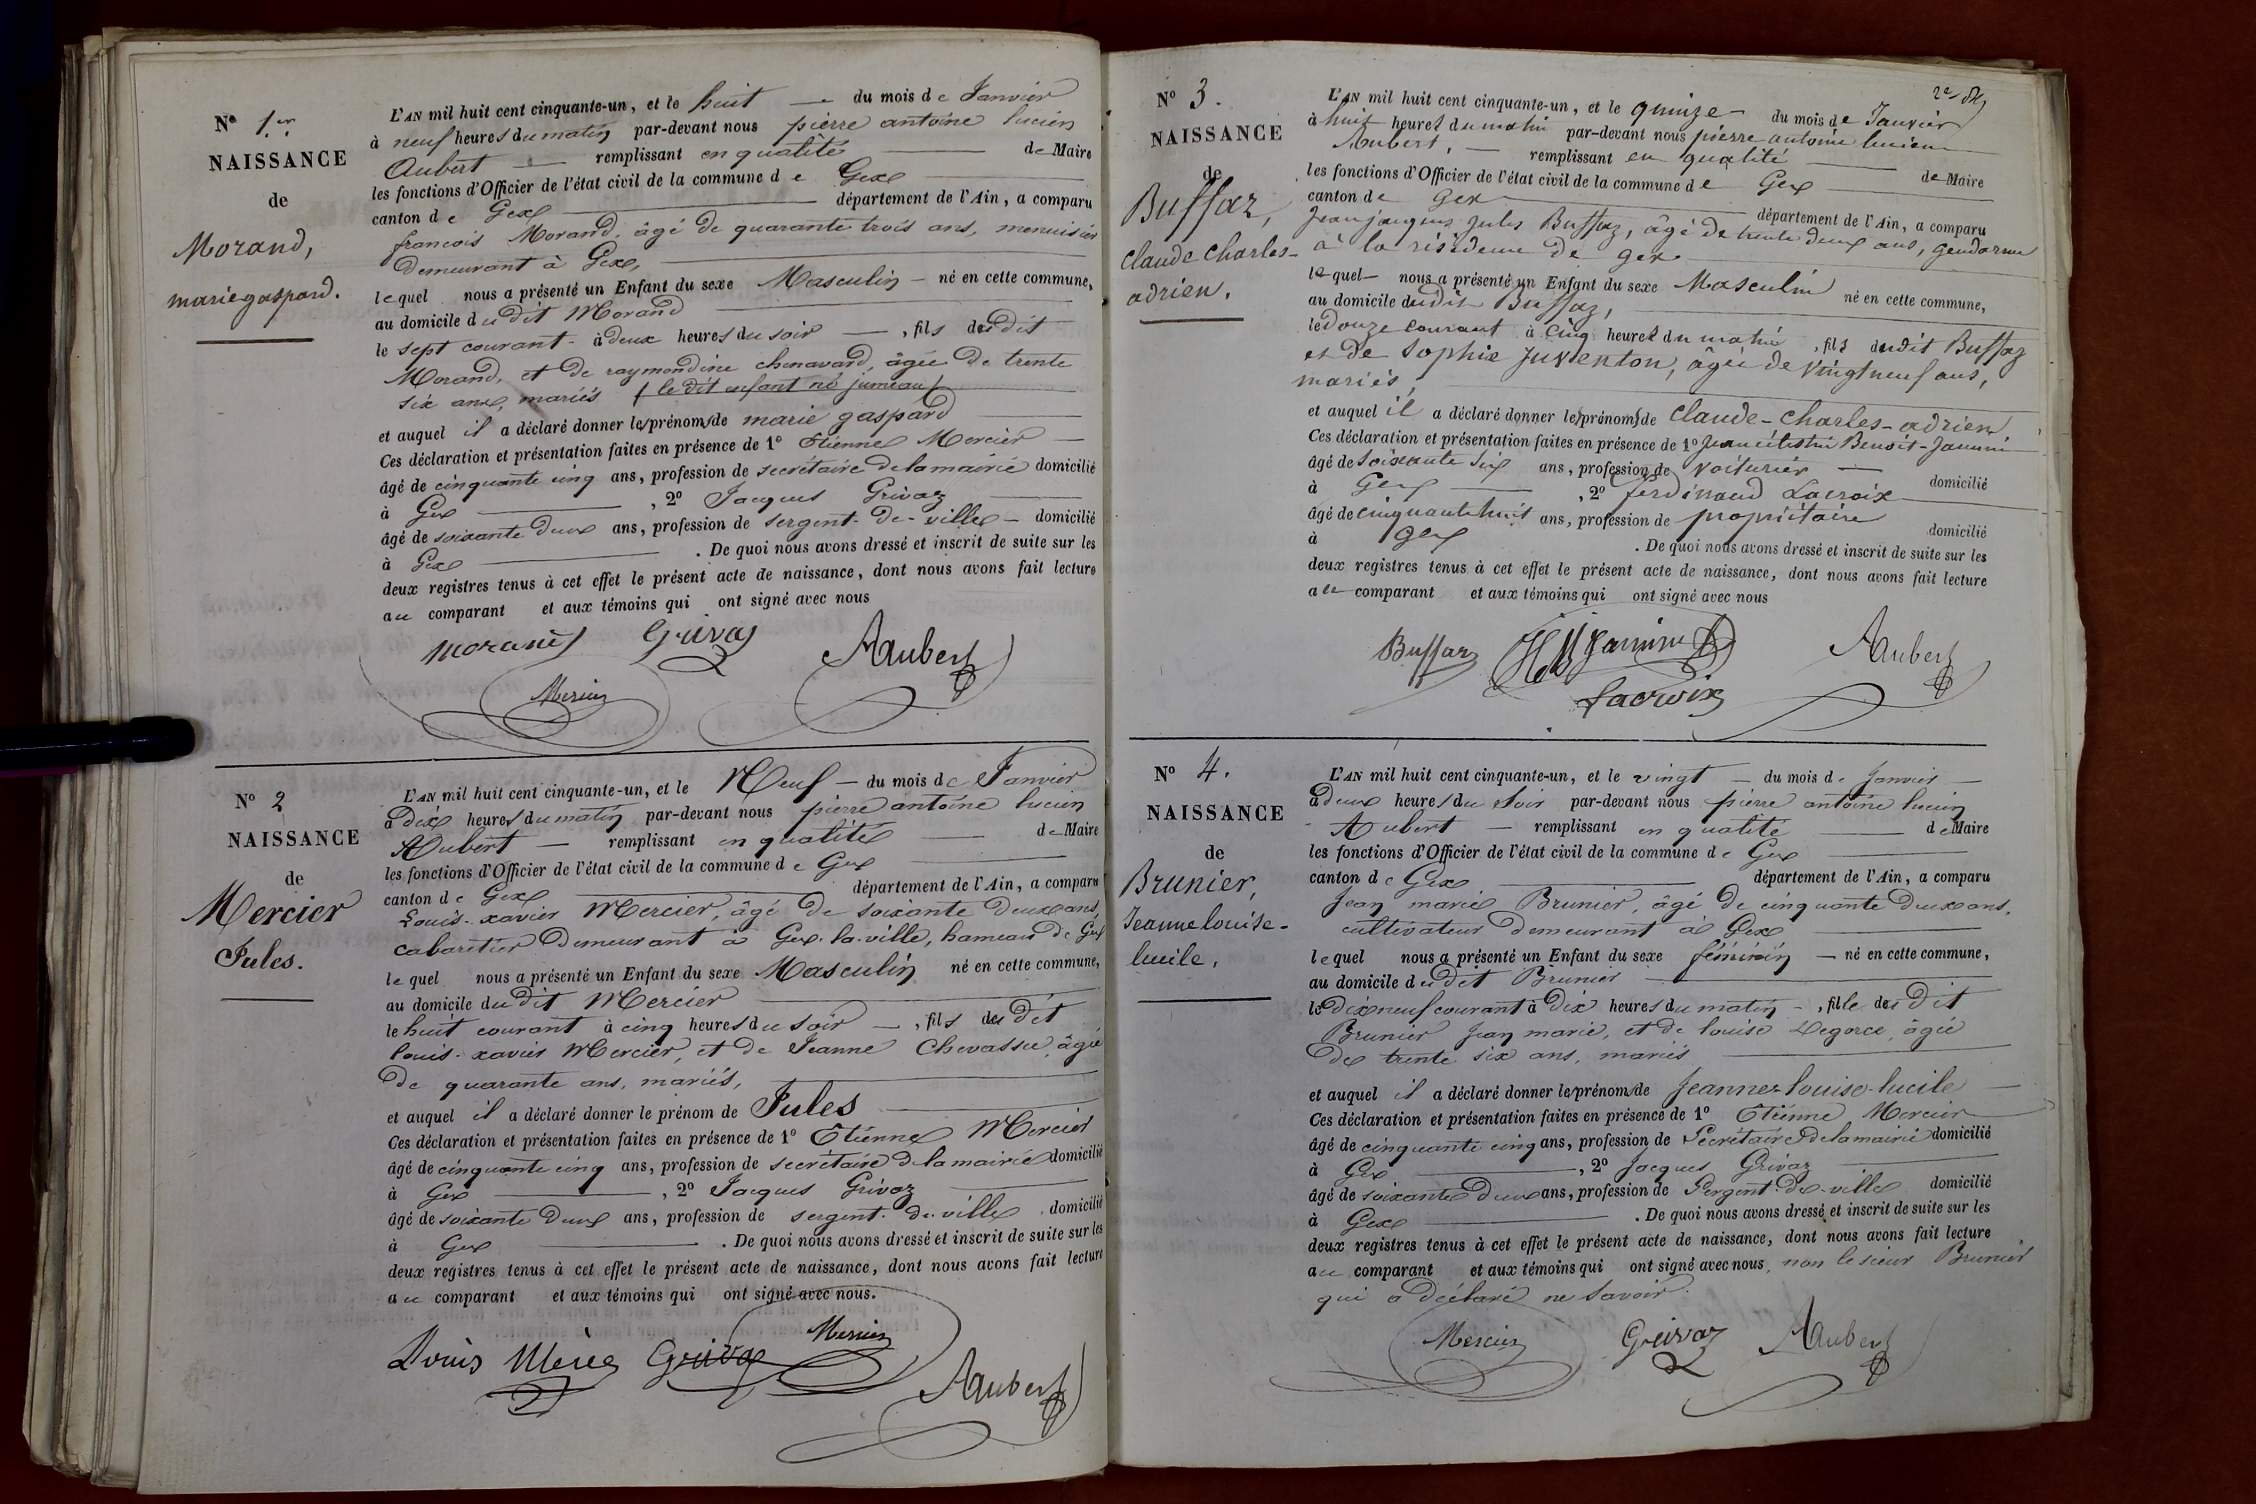 N° 1.er
NAISSANCE
de
Morand,
marie gaspard.
L'AN mil huit cent cinquante-un, et le huit — du mois de Janvier
à neuf heures du matin par-devant nous pierre antoine lucien
Aubert — remplissant en qualité — de Maire
les fonctions d'Officier de l'état civil de la commune de Gex —
canton de Gex — département de l'Ain, a comparu
francois Morand, âgé de quarante trois ans, menuisier
demeurant à Gex, —
lequel nous a présenté un Enfant du sexe Masculin — né en cette commune,
au domicile du dit Morand —
le sept courant - à deux heures du soir — , fils du dit
Morand, et de raymondine chenavard, âgée de trente
six ans, mariés (le dit enfant né jumeau) —
et auquel il a déclaré donner les prénoms de marie gaspard —
Ces déclaration et présentation faites en présence de 1° Etienne Mercier —
âgé de cinquante cinq ans, profession de secrétaire de la mairie domicilié
à Gex — , 2° Jacques Grivaz —
âgé de soixante deux ans, profession de sergent-de-ville — domicilié
à Gex — . De quoi nous avons dressé et inscrit de suite sur les
deux registres tenus à cet effet le présent acte de naissance, dont nous avons fait lecture
au comparant et aux témoins qui ont signé avec nous
Morand Grivaz Aubert
Mercier
N° 2
NAISSANCE
de
Mercier
Jules.
L'AN mil huit cent cinquante-un, et le Neuf — du mois de Janvier
à dix heures du matin par-devant nous pierre antoine lucien
Aubert — remplissant en qualité — de Maire
les fonctions d'Officier de l'état civil de la commune de Gex —
canton de Gex — département de l'Ain, a comparu
Louis-xavier Mercier, âgé de soixante deux ans,
cabaretier demeurant à Gex-la-ville, hameau de Gex
lequel nous a présenté un Enfant du sexe Masculin né en cette commune,
au domicile du dit Mercier —
le huit courant à cinq heures du soir — , fils du dit
louis-xavier Mercier, et de Jeanne Chevassu, âgée
de quarante ans, mariés, —
et auquel il a déclaré donner le prénom de Jules —
Ces déclaration et présentation faites en présence de 1° Etienne Mercier
âgé de cinquante cinq ans, profession de secrétaire d la mairie domicilié
à Gex — , 2° Jacques Grivaz —
âgé de soixante deux ans, profession de sergent-de-ville domicilié
à Gex — . De quoi nous avons dressé et inscrit de suite sur les
deux registres tenus à cet effet le présent acte de naissance, dont nous avons fait lecture
au comparant et aux témoins qui ont signé avec nous.
Louis Grivaz Mercier
Aubert
N° 3.
NAISSANCE
de
Buffaz,
claude charles-
adrien.
L'AN mil huit cent cinquante-un, et le quinze — du mois de Janvier
à huit heures du matin par-devant nous pierre antoine lucien
Aubert, — remplissant en qualité — de Maire
les fonctions d'Officier de l'état civil de la commune de Gex —
canton de Gex — département de l'Ain, a comparu
Jean jacques jules Buffaz, âgé de trente deux ans, gendarme
à la résidence de gex —
lequel — nous a présenté un Enfant du sexe Masculin né en cette commune,
au domicile dudit Buffaz, —
le douze courant à cinq heures du matin , fils dudit Buffaz
et de Sophie Juventon, âgée de vingt neuf ans,
mariés, —
et auquel il a déclaré donner les prénoms de claude-charles-adrien
Ces déclaration et présentation faites en présence de 1° Benoit-Janin
âgé de soixante six ans, profession de voiturier — domicilié
à Gex — , 2° ferdinand Lacroix —
âgé de cinquante huit ans, profession de propriétaire domicilié
à gex . De quoi nous avons dressé et inscrit de suite sur les
deux registres tenus à cet effet le présent acte de naissance, dont nous avons fait lecture
au comparant et aux témoins qui ont signé avec nous
Buffaz Aubert
Lacroix
N° 4.
NAISSANCE
de
Brunier,
Jeanne louise-
lucile.
L'AN mil huit cent cinquante-un, et le vingt — du mois de Janvier —
à deux heures du Soir par-devant nous pierre antoine lucien
Aubert — remplissant en qualité — de Maire
les fonctions d'Officier de l'état civil de la commune de Gex —
canton de Gex — département de l'Ain, a comparu
Jean marie Brunier, âgé de cinquante deux ans,
cultivateur demeurant à Gex —
lequel nous a présenté un Enfant du sexe féminin — né en cette commune,
au domicile du dit Brunier —
le dix neuf courant à dix heures du matin — , fille du dit
Brunier Jean marie, et de louise Degorce, âgée
de trente six ans, mariés —
et auquel il a déclaré donner les prénoms de Jeanne-louise-lucile —
Ces déclaration et présentation faites en présence de 1° Etienne Mercier
âgé de cinquante cinq ans, profession de Secrétaire de la mairie domicilié
à Gex — , 2° Jacques Grivaz —
âgé de soixante deux ans, profession de Sergent-de-ville domicilié
à Gex — . De quoi nous avons dressé et inscrit de suite sur les
deux registres tenus à cet effet le présent acte de naissance, dont nous avons fait lecture
au comparant et aux témoins qui ont signé avec nous, non le sieur Brunier
qui a déclaré ne savoir.
Mercier Grivaz Aubert